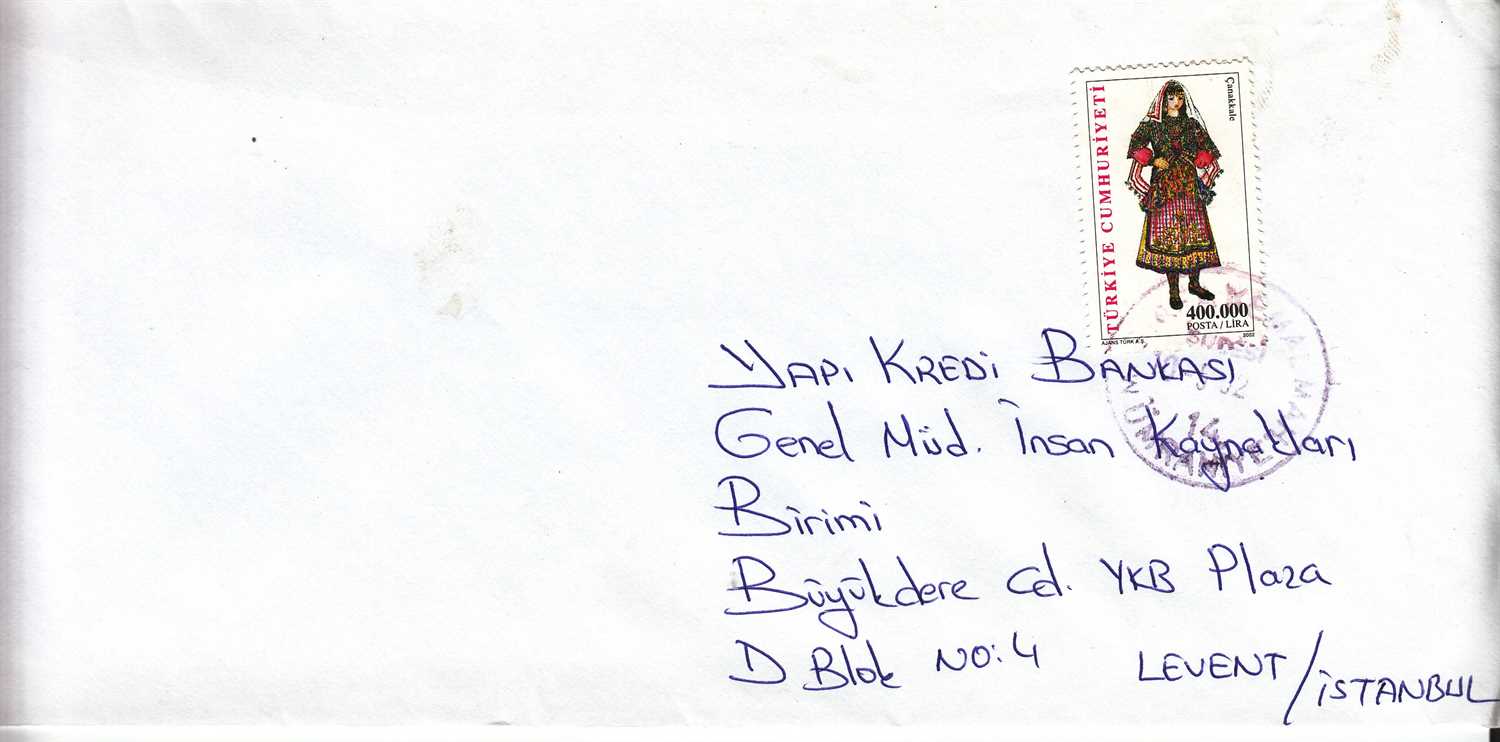 TÜRKİYE CUMHURİYETİ
Çanakkale
400.000
POSTA / LİRA
AJANS TÜRK A.Ş.
2002
YAPI KREDİ BANKASI
Genel Müd. İnsan Kaynakları
Birimi
Büyükdere Cd. YKB Plaza
D Blok NO:4 LEVENT / İSTANBUL
14